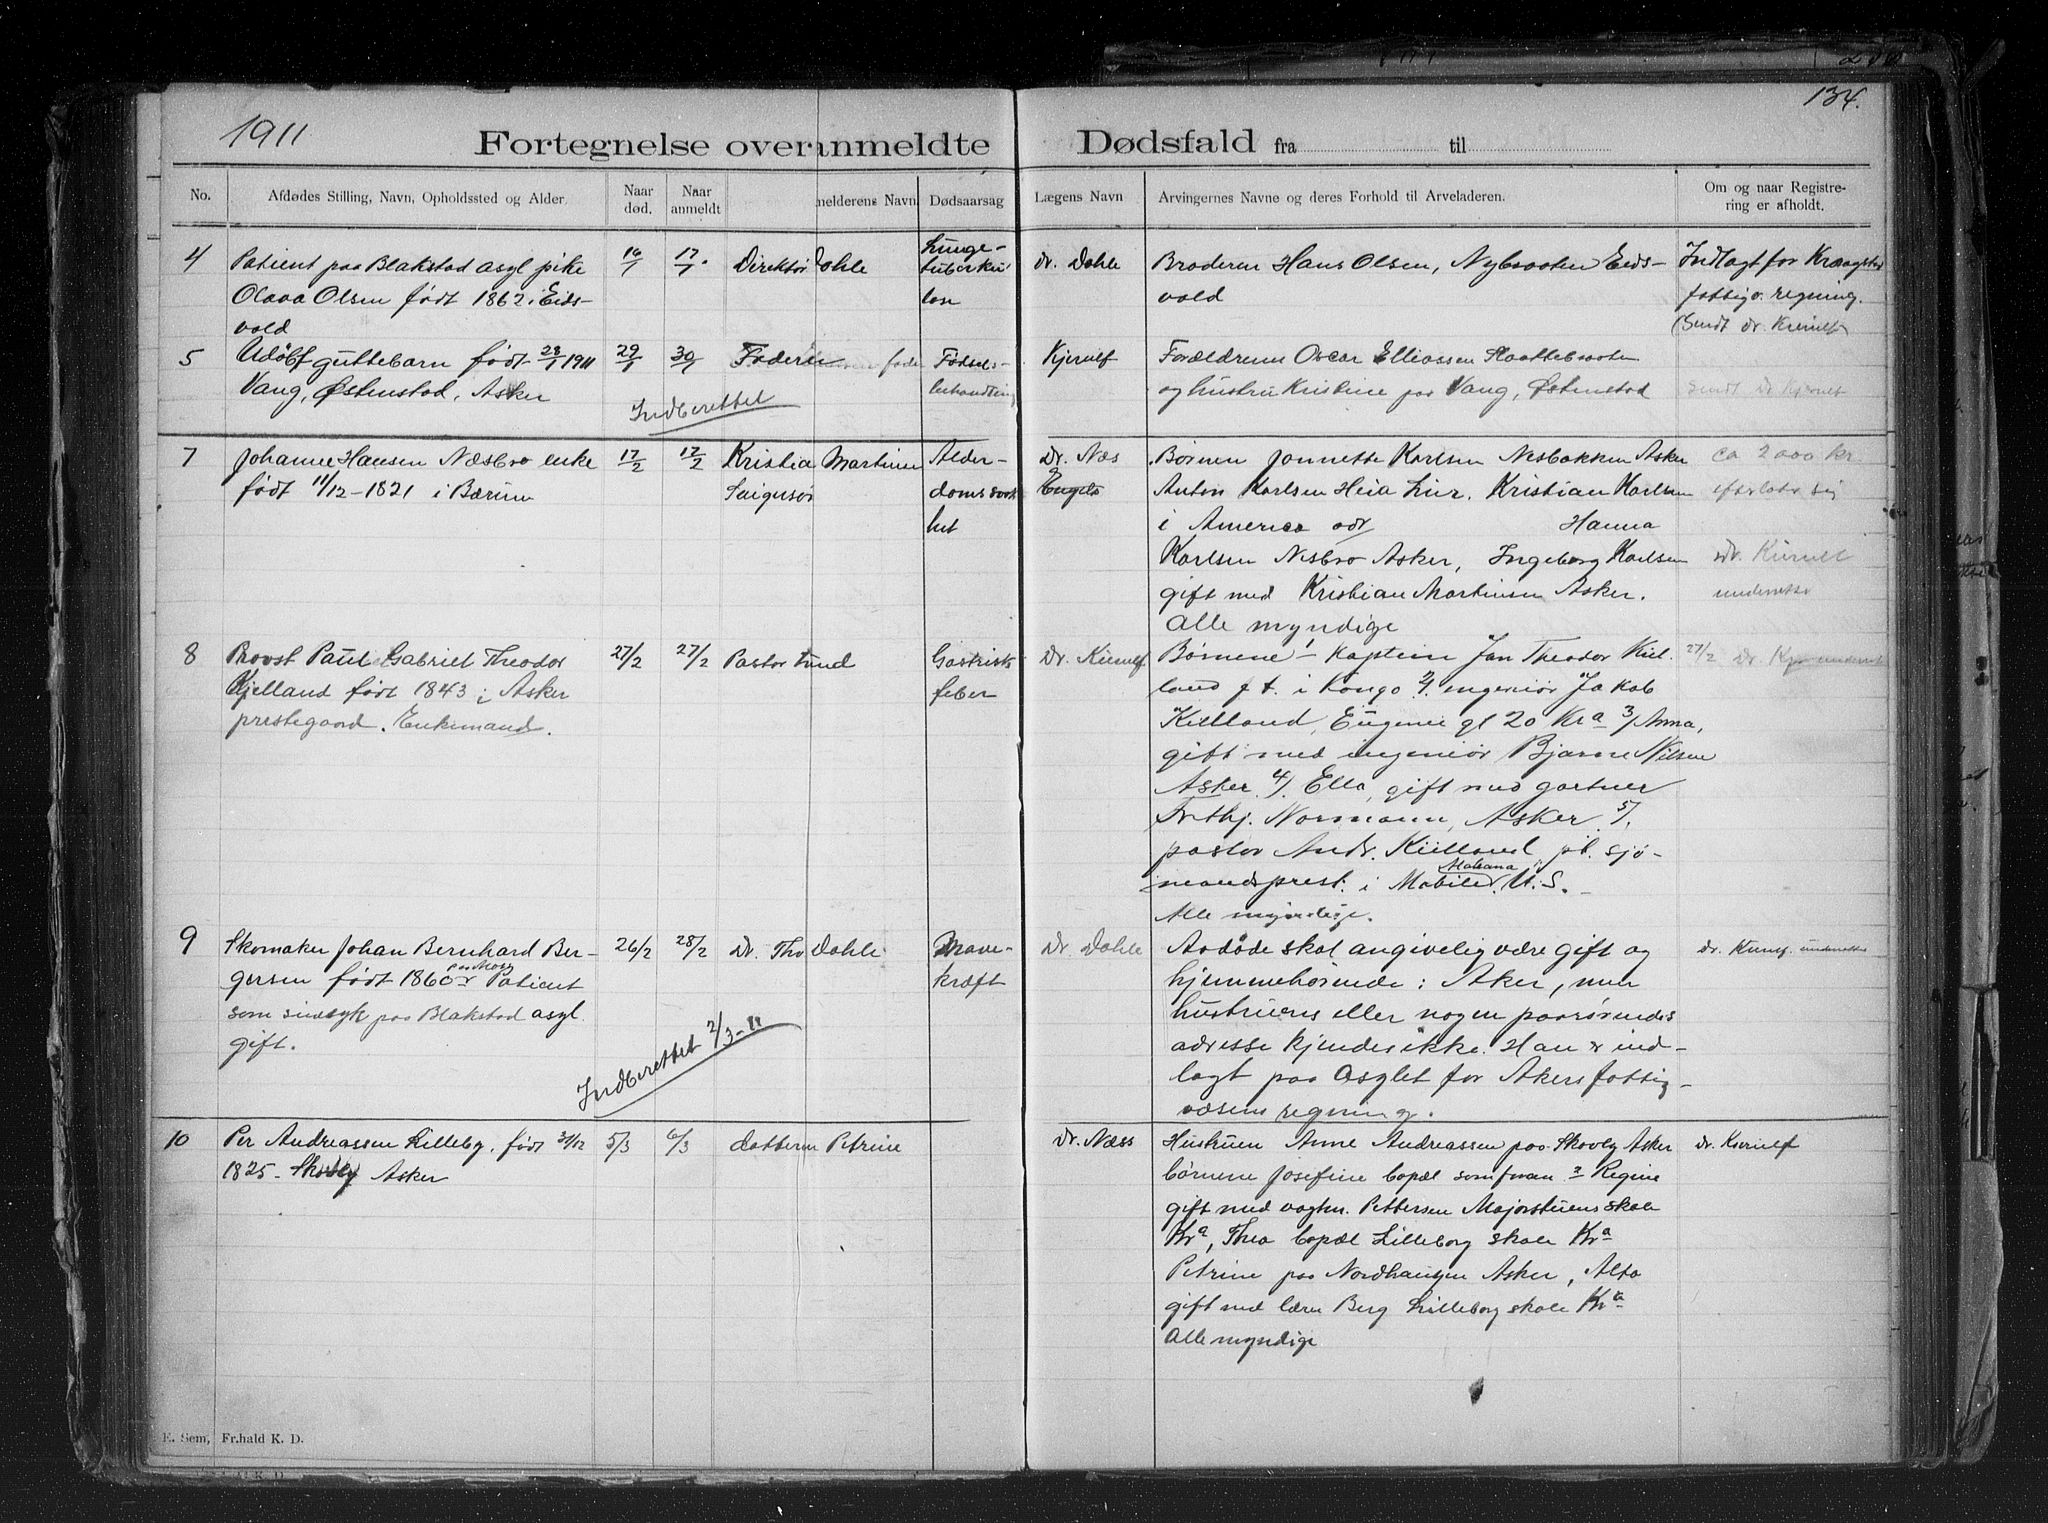 1911
134.
Fortegnelse over anmeldte Dødsfald fra til
No.
Afdødes Stilling, Navn, Opholdssted og Alder
Naar død.
Naar anmeldt
melderens Navn
Dødsaarsag
Lægens Navn
Arvingernes Navne og deres Forhold til Arveladeren.
Om og naar Registre-
ring er afholdt.
4
Patient paa Blakstad asyl pike
Olava Olsen født 1862 i Eids-
vold
16/1
17/1
Direktør Dahle
Lunge-
tuberku
lose
Dr. Dahle
Broderen Hans Olsen, Nybraaten Eids-
vold
Indlagt for Kraagstad
fattigv. regning.
(Sendt dr. Kierulf)
5
Udøbt guttebarn født 28/1 1911
Vang, Østenstad, Asker
29/1
30/1
Faderen
Fødsels-
behandling
Indberettet
Kjerulf
Forældrene Oscar Elliassen Slaattebraaten
og hustru Kristine paa Vang, Østenstad
Sendt Dr Kjerulf
7
Johanne Hansen Næsbro enke
født 11/12-1821 i Bærum
17/2
17/2
Kristia Martinsen
Alder-
domssvak
het
Dr. Næs
Engels
Børnene Jonnette Karlsen Nesbakken Asker
Anton Karlsen Heia Lier, Kristian Karlsen
i America adr Hanna
Karlsen Nesbro Asker, Ingeborg Karlsen
gift med Kristian Martinsen Asker.
Alle myndige
ca 2000 kr
Dr. Kierulf
8
Provst Paul Gabriel Theodor
Kjelland født 1843 i Asker
prestegaard. Enkemand.
27/2
27/2
Pastor Lund
Gastrisk
feber
Dr. Kierulf
Børnene 1/ Kaptein Jan Theodor Kiel.
land f.t. i Kongo 2/. ingeniør Jakob
Kielland, Eugenie gt 20 Kra 3/ Anna,
gift med ingeniør Bjarne Nilsen
Asker. 4/. Ella, gift med gartner
Frithj. Normann, Asker 5/.
pastor Andr. Kielland pt. sjø-
mandsprest. i Mobile Alabama U. S.
Alle myndige.
27/2 Dr. Kj underret
9
Skomaker Johan Bernhard Ber-
gersen født 1860 Patient
som sindsyk paa Blakstad asyl.
gift.
26/2
28/2
Dr. Tho Dahle
Mave-
kræft
Indberettet 2/3-11
Dr. Dahle
Avdøde skal angivelig være gift og
hjemmehørende i Asker, men
hustruens eller nogen paarørendes
adresse kjendes ikke. Han er ind-
lagt paa Asylet for Akers fattig-
væsens regning.
Dr. Kierulf underrettet
10
Per Andreassen Lilleby, født 31/12
1825 - Skovby Asker
5/3
6/3
datteren Petrine
Dr. Næss
Hustruen Anne Andreassen paa Skovby Asker
børnene Josefine bopæl som foran Regine
gift med vagtm. Pettersen Majorstuens skole
Kra, Thea bopæl Lilleborg skole Kra
Petrine paa Nordhaugen Asker, Alfa
gift med lærer Berg Lilleborg skole Kra
Alle myndige
Dr. Kierulf
E. Sem, Fr.hald K. D.